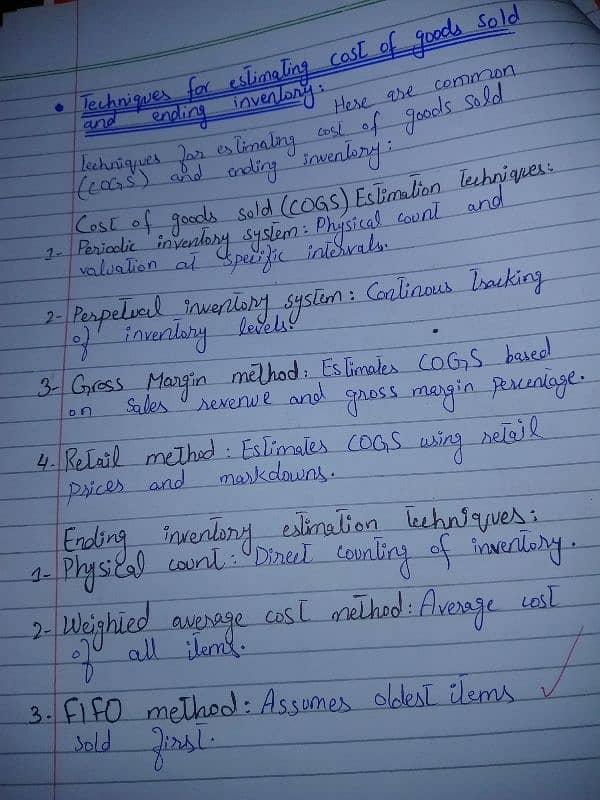 • Techniques for estimating cost of goods sold
and ending inventory:
Here are common
techniques for estimating cost of goods sold
(COGS) and ending inventory:
Cost of goods sold (COGS) Estimation techniques:
1- Periodic inventory system: Physical count and
valuation at specific intervals.
2- Perpetual inventory system: Continous tracking
of inventory levels.
3- Gross Margin method: Estimates COGS based
on sales revenue and gross margin percentage.
4. Retail method: Estimates COGS using retail
prices and markdowns.
Ending inventory estimation techniques:
1- Physical count: Direct counting of inventory.
2- Weighted average cost method: Average cost
of all items.
3. FIFO method: Assumes oldest items
sold first.